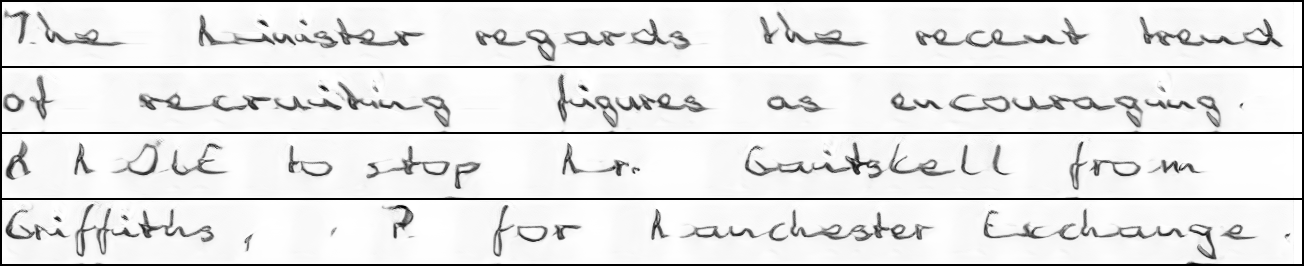 The Minister regards the recent trend
of recruiting figures as encouraging.
A MOVE to stop Mr. Gaitskell from
Griffiths, P for Manchester Exchange.